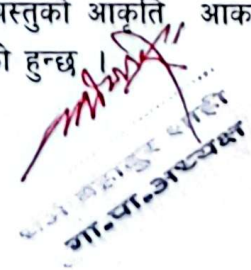 वस्तुको आकृति आक
ो हुन्छ ।
बहादुर शाही
गा.पा.अध्यक्ष